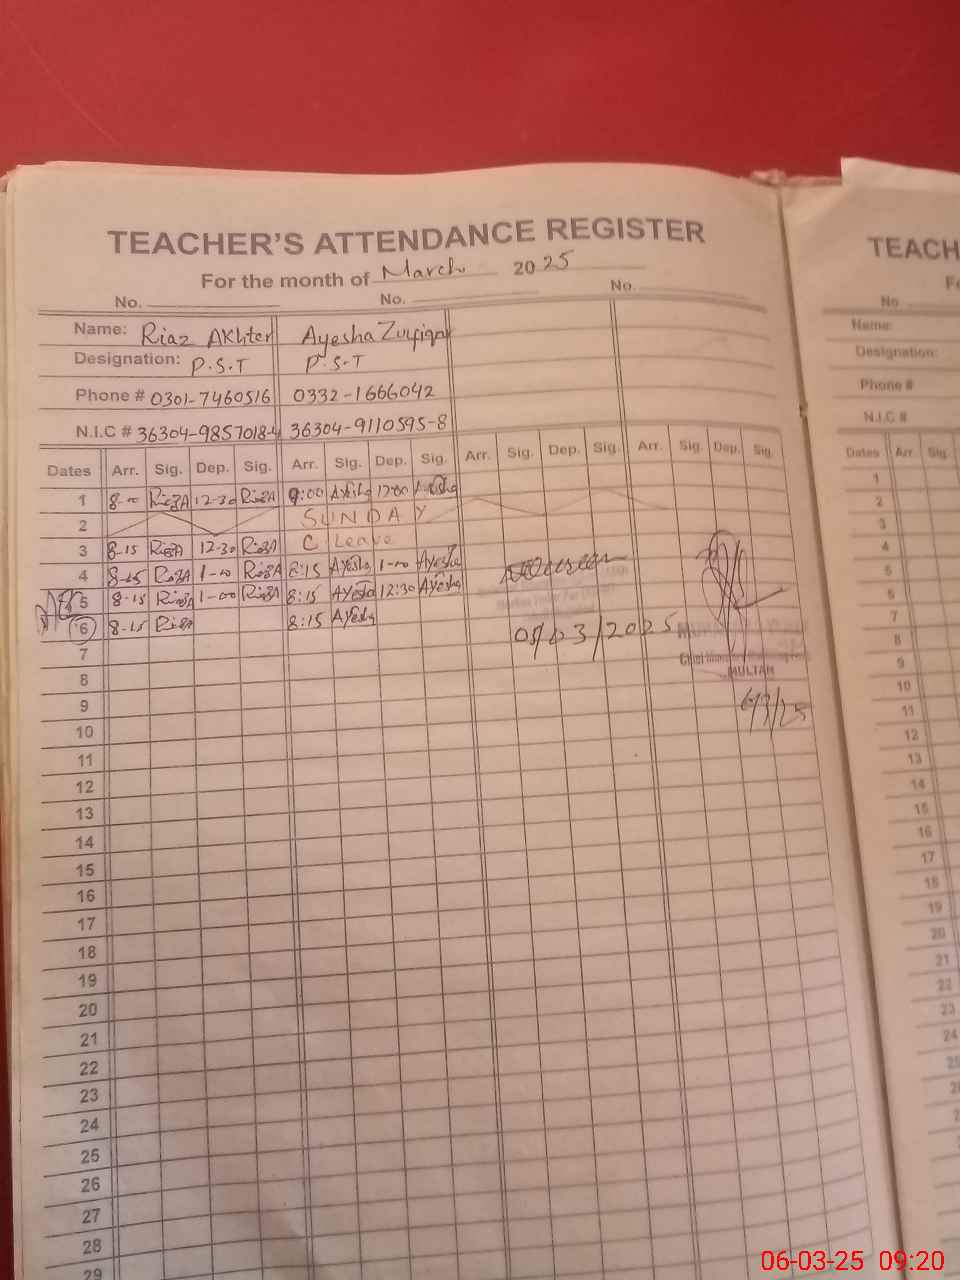 TEACHER'S ATTENDANCE REGISTER
For the month of March 2025
No. No. No.
Name: Riaz Akhter Ayesha Zulfiqar
Designation: P.S.T P.S.T
Phone # 0301-7460516 0332-1666042
N.I.C # 36304-9857018-4 36304-9110595-8
Dates Arr. Sig. Dep. Sig. Arr. Sig. Dep. Sig. Arr. Sig. Dep. Sig. Arr. Sig. Dep. Sig.
1 8-00 RiazA 12-30 RiazA 9:00 Ayesha Ayesha
2 SUNDAY
3 8-15 RiazA 12-30 RiazA C Leave
4 8-15 RiazA 1-00 RiazA 8:15 Ayesha 1-00 Ayesha
5 8-15 RiazA 1-00 RiazA 8:15 Ayesha 12:30 Ayesha
6 8-15 RiazA 8:15 Ayesha
05/03/2025
7
MULTAN
8
9
6/3/25
10
11
12
13
14
15
16
17
18
19
20
21
22
23
24
25
26
27
28
29
TEACH
No
Name:
Designation:
Phone #
N.I.C #
Dates Arr. Sig.
1
2
3
4
5
6
7
8
9
10
11
12
13
14
15
16
17
18
19
20
21
22
23
24
25
06-03-25 09:20